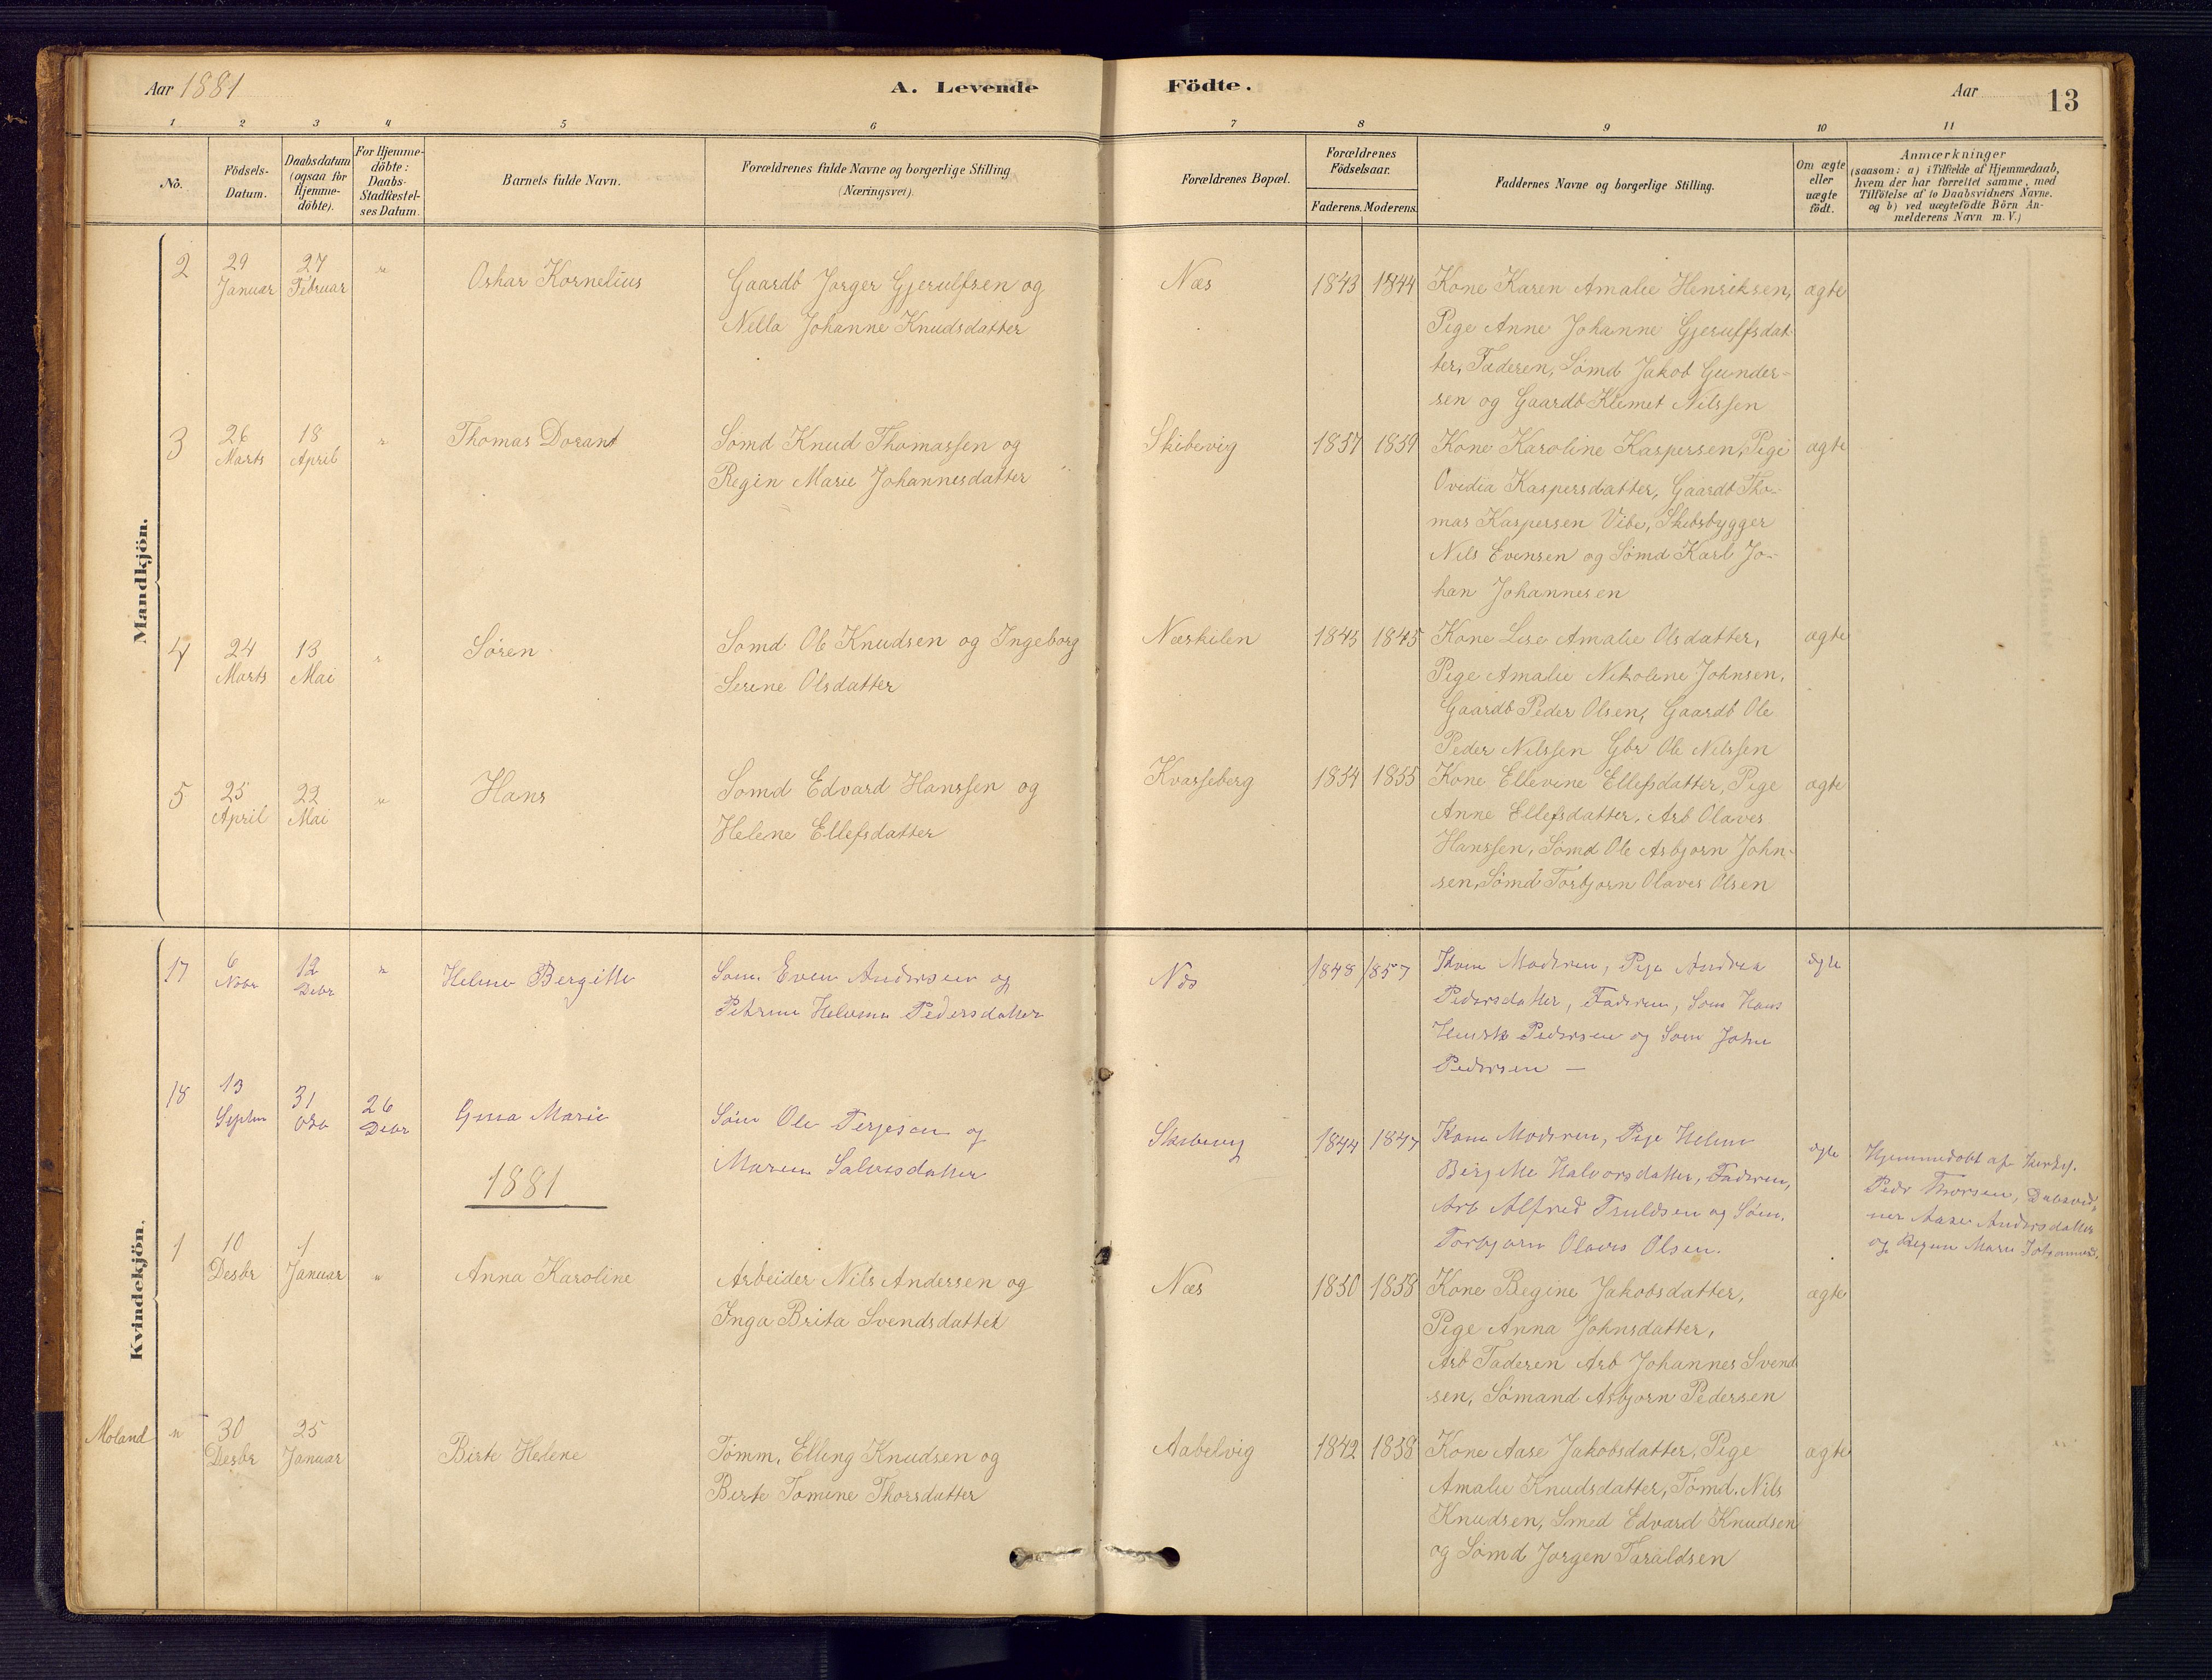 Aar 1881
A. Levende Födte.
Aar
13
1 2 3 4 5 6 7 8 9 10 11
No.
Födsels-Datum.
Daabsdatum (ogsaa for Hjemme-döbte).
For Hjemme-döbte: Daabs-Stadfæstel-ses Datum.
Barnets fulde Navn.
Forældrenes fulde Navne og borgerlige Stilling (Næringsvei).
Forældrenes Bopæl.
Forældrenes Födselsaar.
Faderens. Moderens.
Faddernes Navne og borgerlige Stilling.
Om ægte eller uægte födt.
Anmærkninger
(saasom: a) i Tilfælde af Hjemmedaab,
hvem der har forrettet samme, med
Tilföielse af to Daabsvidners Navne.
og b) ved uægtefödte Börn An-
melderens Navn m. V.)
Mandkjön.
2 29 Januar 27 Februar " Oskar Kornelius
Gaardb Jorger Gjerulfsen og
Nella Johanne Knudsdatter
Næs 1843 1844
Kone Karen Amalie Henriksen,
Pige Anne Johanne Gjerulfsdat-
ter, Faderen, Sömd Jakob Gunder-
sen og Gaardb Klemet Nilssen
ægte
3 26 Marts 18 April " Thomas Dorant
Sömd Knud Thomassen og
Regin Marie Johannesdatter
Skibevig 1857 1859
Kone Karoline Kaspersen, Pige
Ovedia Kaspersdatter, Gaardb Tho-
mas Kaspersen Vibe, Skibsbygger
Nils Evensen og Sömd Karl Jo-
han Johannesen
ægte
4 24 Marts 13 Mai " Sören
Somd Ole Knudsen og Ingeborg
Serine Olsdatter
Næskilen 1845 1845
Kone Lise Amalie Olsdatter,
Pige Amalie Nikoline Johnsen,
Gaardb Peder Olsen, Gaardb Ole
Peder Nilssen Gbr Ole Nilssen
ægte
5 25 April 22 Mai " Hans
Somd Edvard Hanssen og
Helene Ellefsdatter
Kvasseberg 1854 1855
Kone Ellevine Ellefsdatter, Pige
Anne Ellefsdatter, Arb Olaves
Hanssen, Sömd Ole Asbjorn John-
sen, Sömd Torbjorn Olaves Olsen
ægte
Kvindekjön.
17 6 Nobr 12 Debr " Helene Bergitte
Söm. Even Andersen og
Petrine Helene Pedersdatter
Næs 1848 1857
Kone Moderen, Pige Andrea
Pedersdatter, Faderen, Söm Hans
Henrik Pedersen og Söm John
Pedersen –
ægte
18 13 Septbr 31 Oktb 26 Debr Gina Marie
Söm Ole Terjesen og
Maren Salvesdatter
1844 1847
Kone Moderen, Pige Helene
Birgitte Halvorsdatter, Faderen,
Arb Alfred Truldsen og Söm.
Torbjorn Olaves Olsen.
ægte
Hjemmedöbt af
Peder Thorsen, Daabsvid-
ner Aase Andersdatter
og Regine Marie
1881
1 10 Desbr 1 Januar " Anna Karoline
Arbeider Nils Andersen og
Inga Brita Svendsdatter
Næs 1850 1858
Kone Regine Jakobsdatter,
Pige Anna Johnsdatter,
Arb Faderen Arb Johannes Svend
sen, Sömand Asbjorn Pedersen
ægte
Moland " 30 Desbr 25 Januar Birte Helene
Tömm, Elling Knudsen og
Berte Tomine Thorsdatter
Aabelvig 1842 1858
Kone Aase Jakobsdatter, Pige
Amalie Knudsdatter, Tömd. Nils
Knudsen, Smed Edvard Knudsen
og Sömd Jorgen Taraldsen
ægte